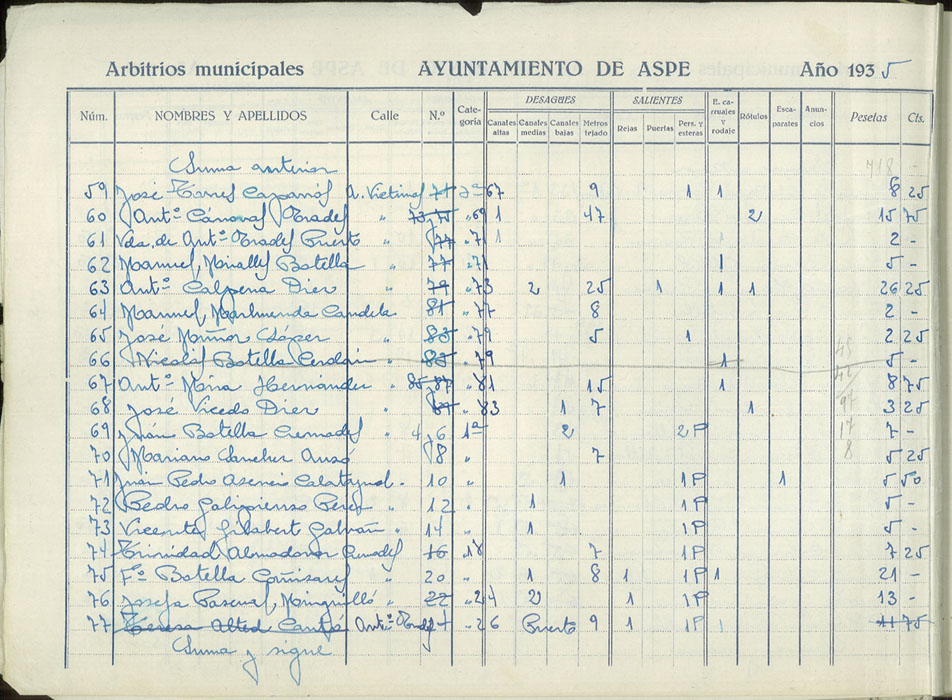 Arbitrios municipales AYUNTAMIENTO DE ASPE Año 1935
Núm. NOMBRES Y APELLIDOS Calle N.º Categoría DESAGUES Canales altas Canales medias Canales bajas Metros tejado SALIENTES Rejas Puertas Pers. y esteras E. carruajes y rodaje Rótulos Escaparates Anuncios Pesetas Cts.
Suma anterior 718 -
59 José Torres Caparrós A. Victimas 71 2ª 67 9 1 1 8 25
60 Antº Cánovas Prades " 73 75 " 69 1 47 2 15 75
61 Vda. de Antº Prades Puerto " 77 " 71 1 2 -
62 Manuel Mirallés Botella " 77 " 71 1 5 -
63 Antº Calpena Dier " 79 " 73 2 25 1 1 1 26 25
64 Manuel Candela 81 " 77 8 2 -
65 José Muñoz López " 83 " 79 5 1 2 25
66 Nicolás Botella Cerdán " 85 " 79 1 5 -
67 Antº Mira Hernandez " 85 87 " 81 15 1 8 75
68 José Vicedo Dier " 87 " 83 1 7 1 3 25
69 Botella Cremades " 4 6 1ª 2 2P 7 -
70 Mariano Sanchez " 8 " 7 5 25
71 Juan Pedro Asencio Calatayud " 10 " 1 1P 1 5 50
72 Pedro Galipienzo Perez " 12 " 1 1P 5 -
73 Vicente Gilabert Galvañ " 14 " 1 1P 5 -
74 Trinidad Almodovar Cremades 16 " 18 7 1P 7 25
75 Fº Botella Cañizares " 20 " 1 8 1 1P 1 21 -
76 Josefa Pascual Minguilló " 22 " 24 2 1 1P 13 -
77 Teresa Alted Cantó Antº Prades 4 " 26 Puerto 9 1 1P 1 11 75
Suma y sigue